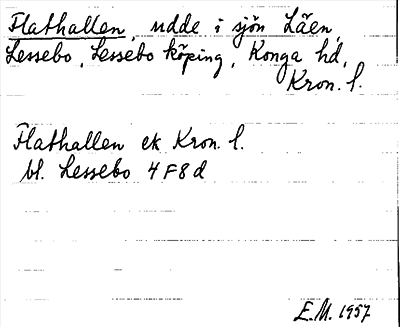 Flathallen, udde i sjön Läen,
Lessebo, Lessebo köping, Konga hd,
Kron. l.
Flathallen ek Kron. l.
bl. Lessebo 4F8d
E.M. 1957